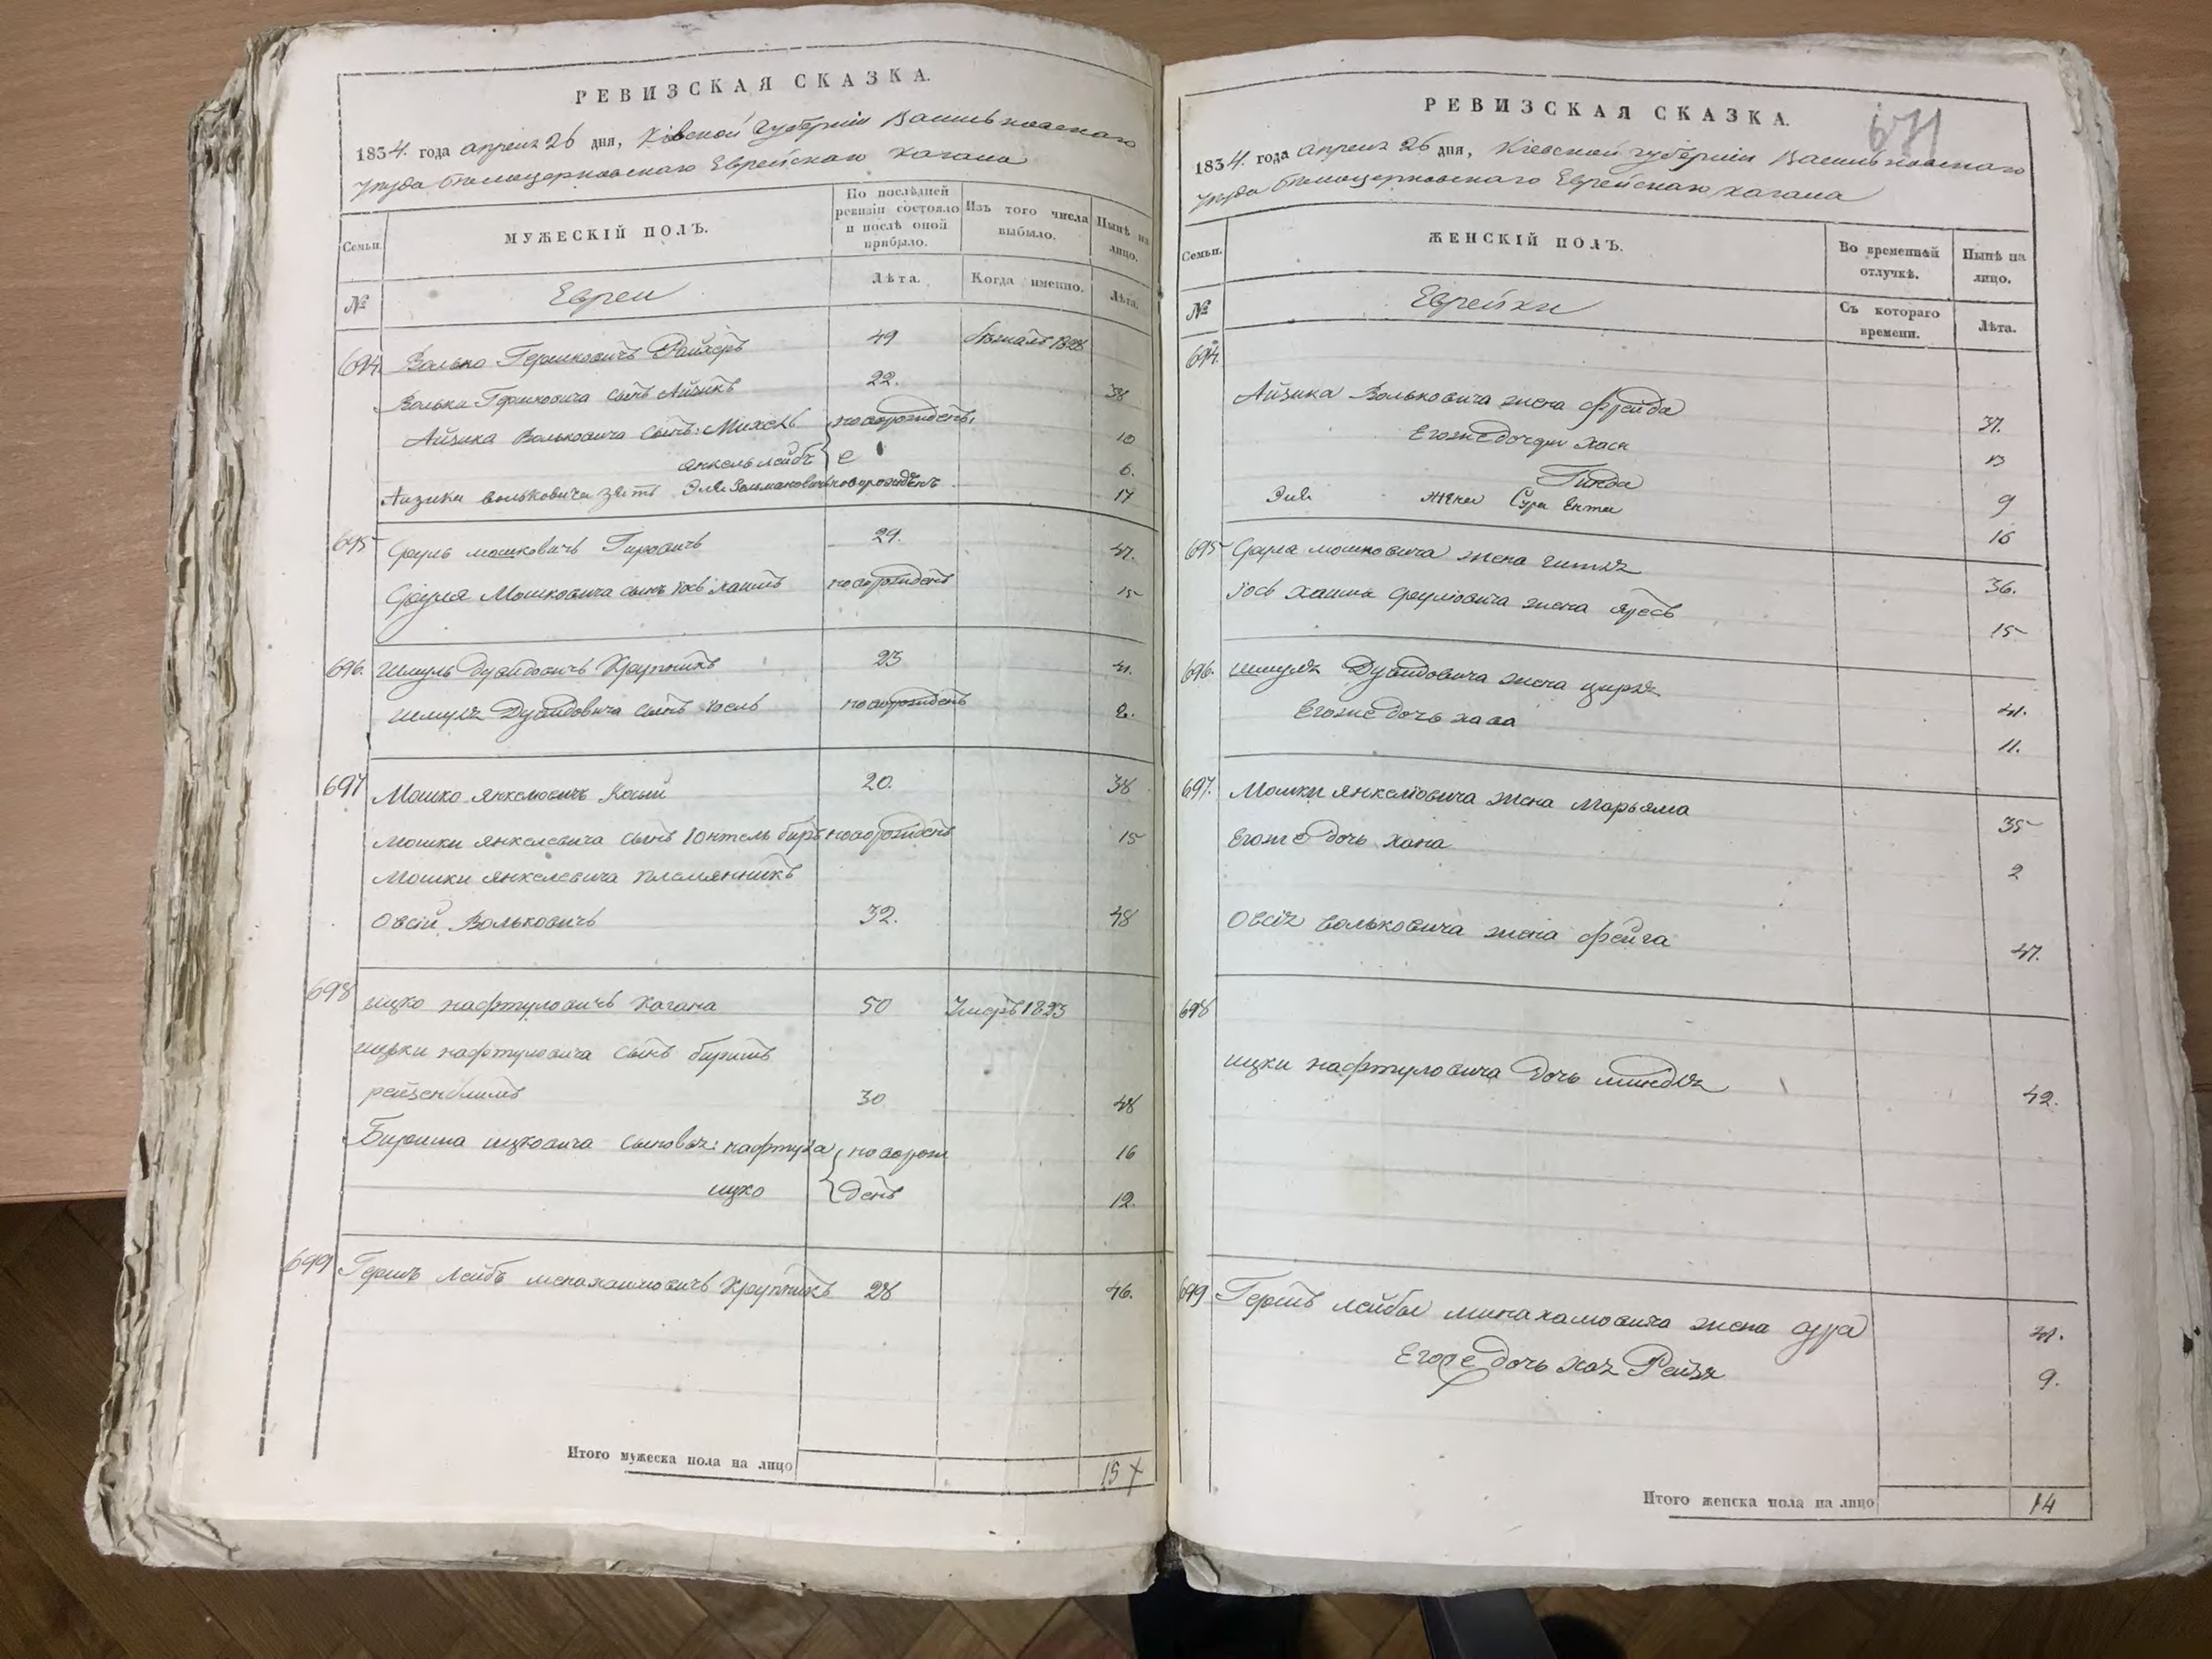 РЕВИЗСКАЯ СКАЗКА.
1834. года апреля 26 дня, Кіевской Губерніи Васильковскаго
уезда Белоцерковскаго Еврейскаго кагала
Семьи.
МУЖЕСКІЙ ПОЛЪ.
По послѣдней ревизіи состояло и послѣ оной прибыло.
Изъ того числа выбыло.
Нынѣ на лицо.
№
Евреи
Лѣта.
Когда именно.
Лѣта.
694 Волько Гершковичъ 49 1828
Вольки Гершковича сынъ Айзикъ 22. 38
Айзика Вольковича сынъ: Михель новорожденъ, 10
Янкель лейбъ е 6.
Аизики вольковича зять Эля Зельмановичь новорожденъ 17
695 Сруль мошковичъ 29. 47.
Сруля Мошковича сынъ Іось хаимъ новорожденъ 15
696. Шмуль Дувидовичъ Крупникъ 23 41.
Шмуля Дувидовича сынъ іосль новорожденъ 2.
697 Мошко Янкелювичъ Косый 20. 38
Мошки Янкелевича сынъ Юнтель беръ новорожденъ 15
Мошки Янкелевича племянникъ
Овсій Вольковичъ 32. 48
698 ицко нафтуловичъ Кагана 50 Умеръ 1823
ицки нафтуловича сынъ биришъ
рейзенблитъ 30 48
Бириша ицковича сыновья: нафтула новорож 16
ицко денъ 12.
699 Гершъ Лейбъ менахаимовичъ Крупникъ 28 46.
Итого мужеска пола на лицо 15
РЕВИЗСКАЯ СКАЗКА.
671
1834. года апреля 26 дня, Кіевской губерніи Васильковскаго
уезда Белоцерковскаго Еврейскаго кагала
Семьи.
ЖЕНСКІЙ ПОЛЪ.
Во временной отлучкѣ.
Нынѣ на лицо.
№
Еврейки
Съ котораго времени.
Лѣта.
694.
Айзика Вольковича жена фрейда 37.
Егоже дочери Хася 13
Гинда 9
Эли жена Сура Ента 16
695 Сруля мошковича жена гитля 36.
Іось хаима срулювича жена 15
696. Шмуля Дувидовича жена цирля 41.
Егоже дочь хава 11.
697. Мошки Янкелювича жена Марьяма 35
Егоже дочь хана 2
Овсія вольковича жена фейга 47.
698
ицки нафтуловича дочь миндля 42.
699 Гершъ лейбы минахамовича жена сура 41.
Егоже дочь хая Рейзя 9.
Итого женска пола на лицо 14